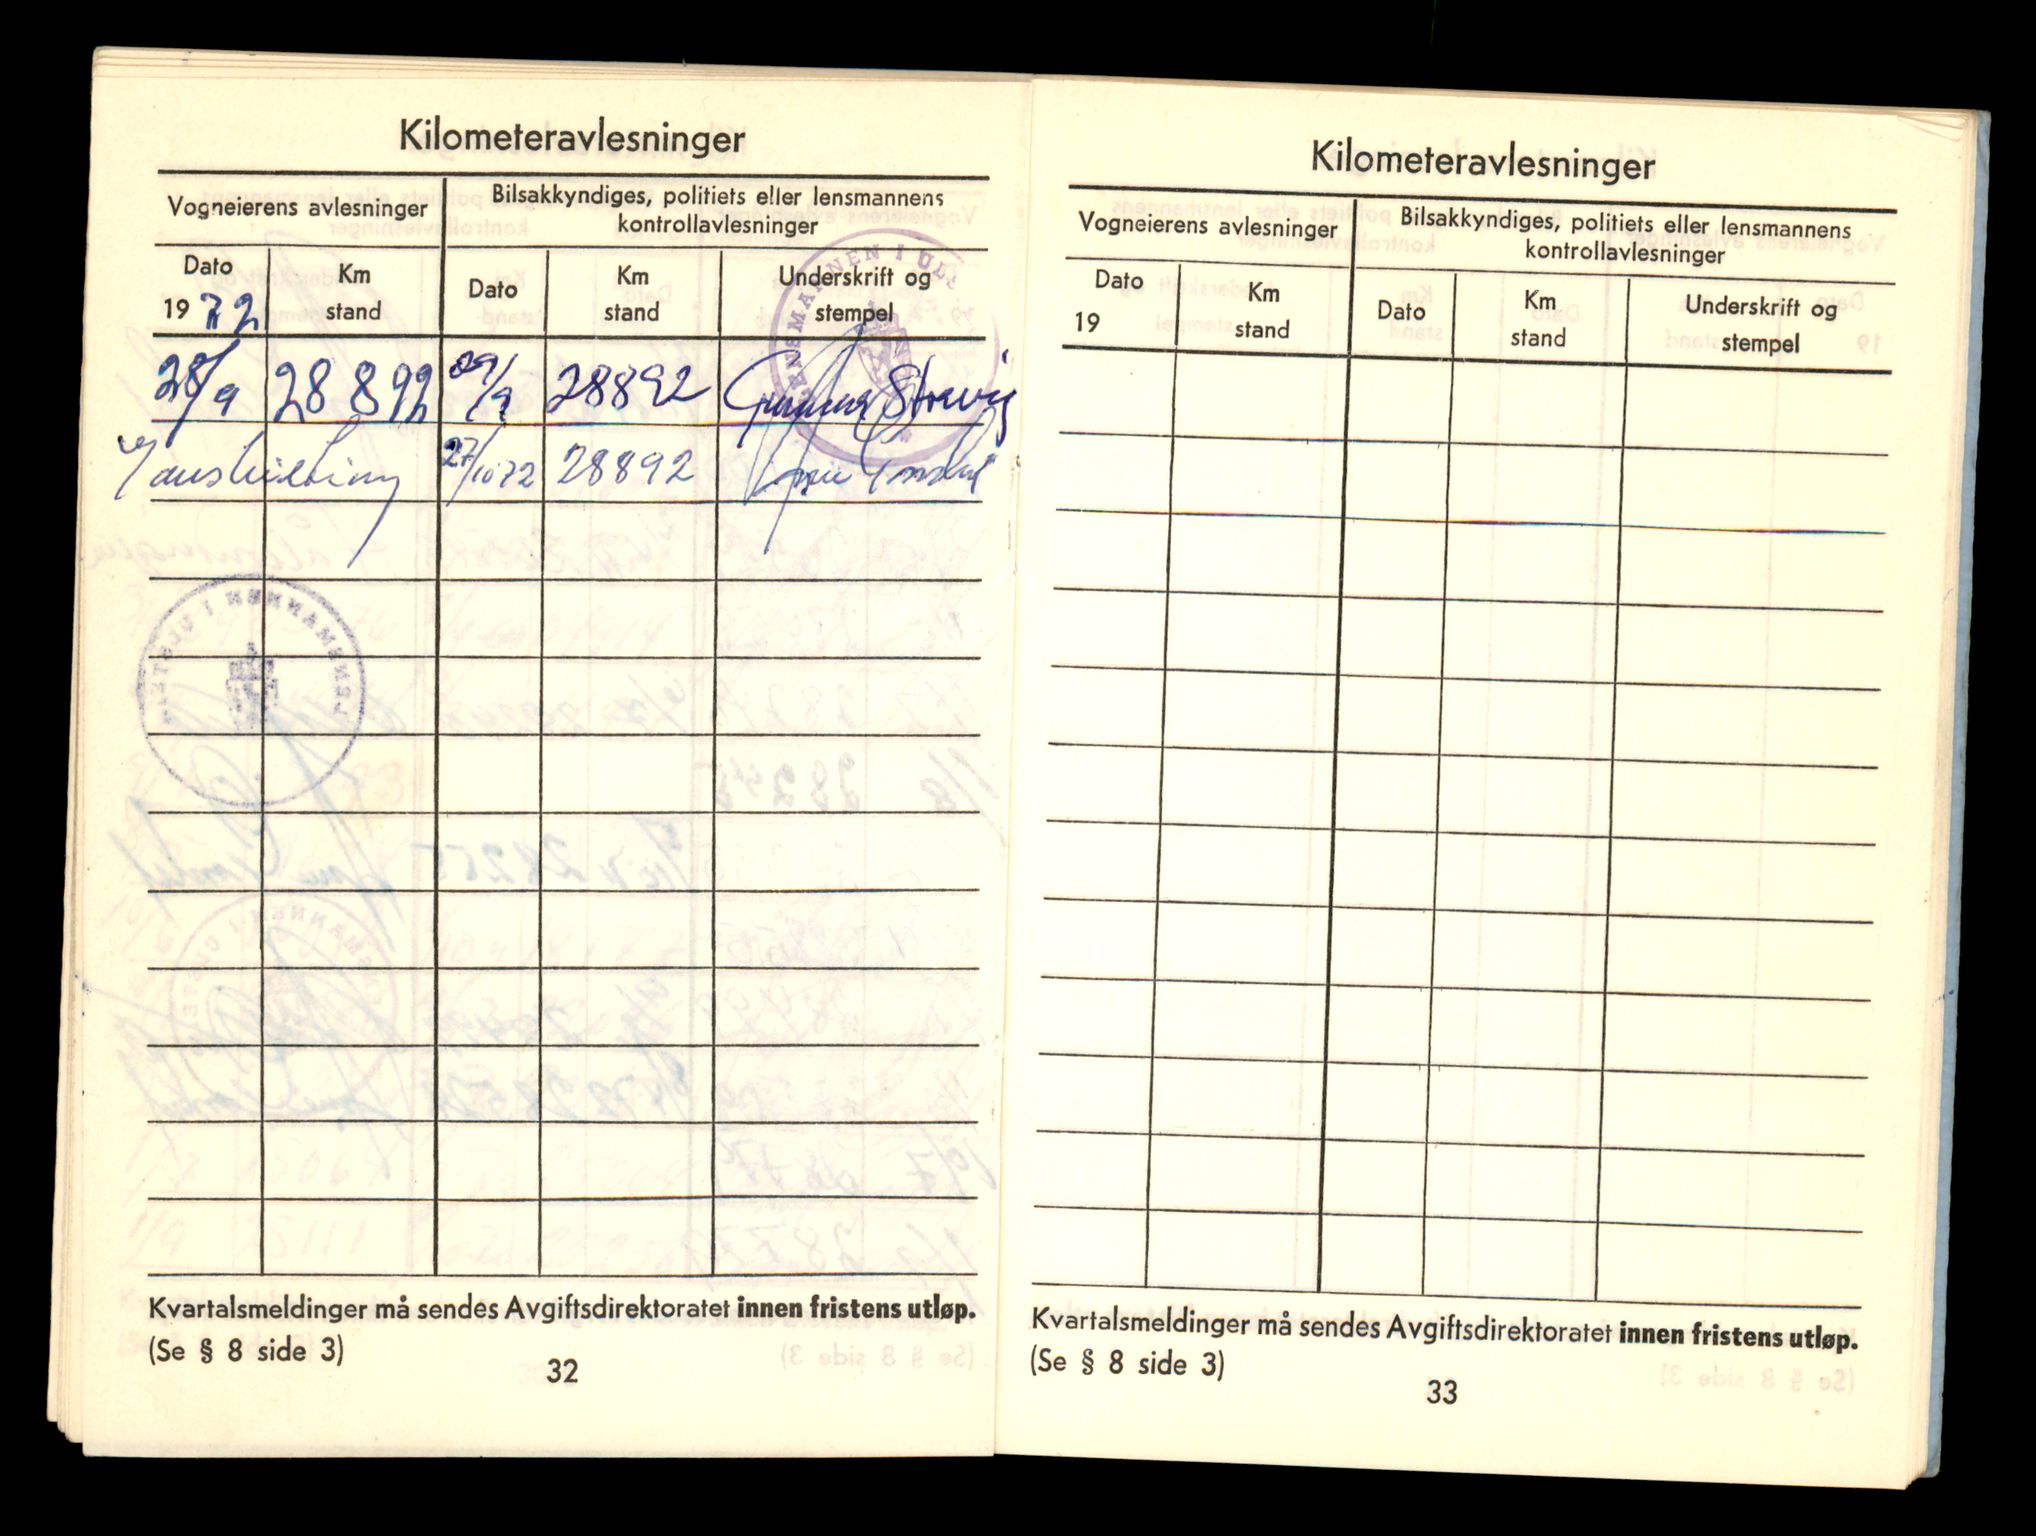 Kilometeravlesninger
Vogneierens avlesninger
Bilsakkyndiges, politiets eller lensmannens
kontrollavlesninger
Dato
19 72
Km
stand
Dato
Km
stand
Underskrift og
stempel
LENSMANNEN I UL
28/9 28 892 29/9 28892 Gunnar
27/10 72 28892
LENSMANNEN I
Kvartalsmeldinger må sendes Avgiftsdirektoratet innen fristens utløp.
(Se § 8 side 3)
32
Kilometeravlesninger
Vogneierens avlesninger
Bilsakkyndiges, politiets eller lensmannens
kontrollavlesninger
Dato
19
Km
stand
Dato
Km
stand
Underskrift og
stempel
Kvartalsmeldinger må sendes Avgiftsdirektoratet innen fristens utløp.
(Se § 8 side 3)
33